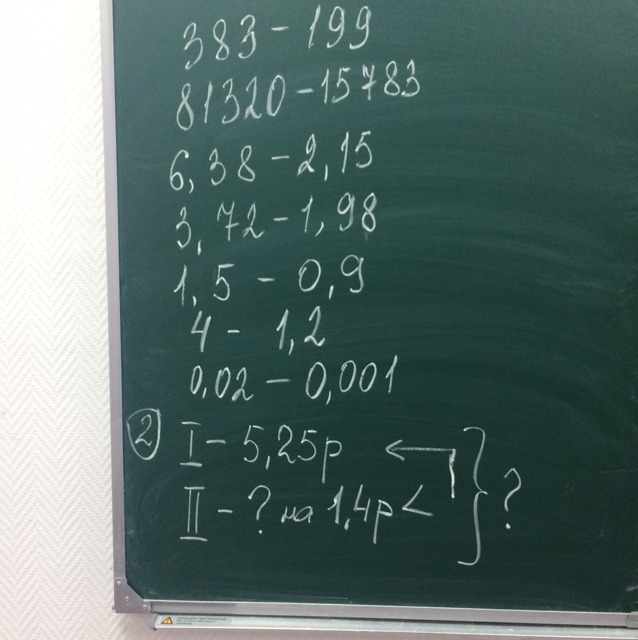 383 - 199
81320 - 15783
6,38 - 2,15
3,72 - 1,98
1,5 - 0,9
4 - 1,2
0,02 - 0,001
2 I - 5,25р
II - ? на 1,4р < } ?